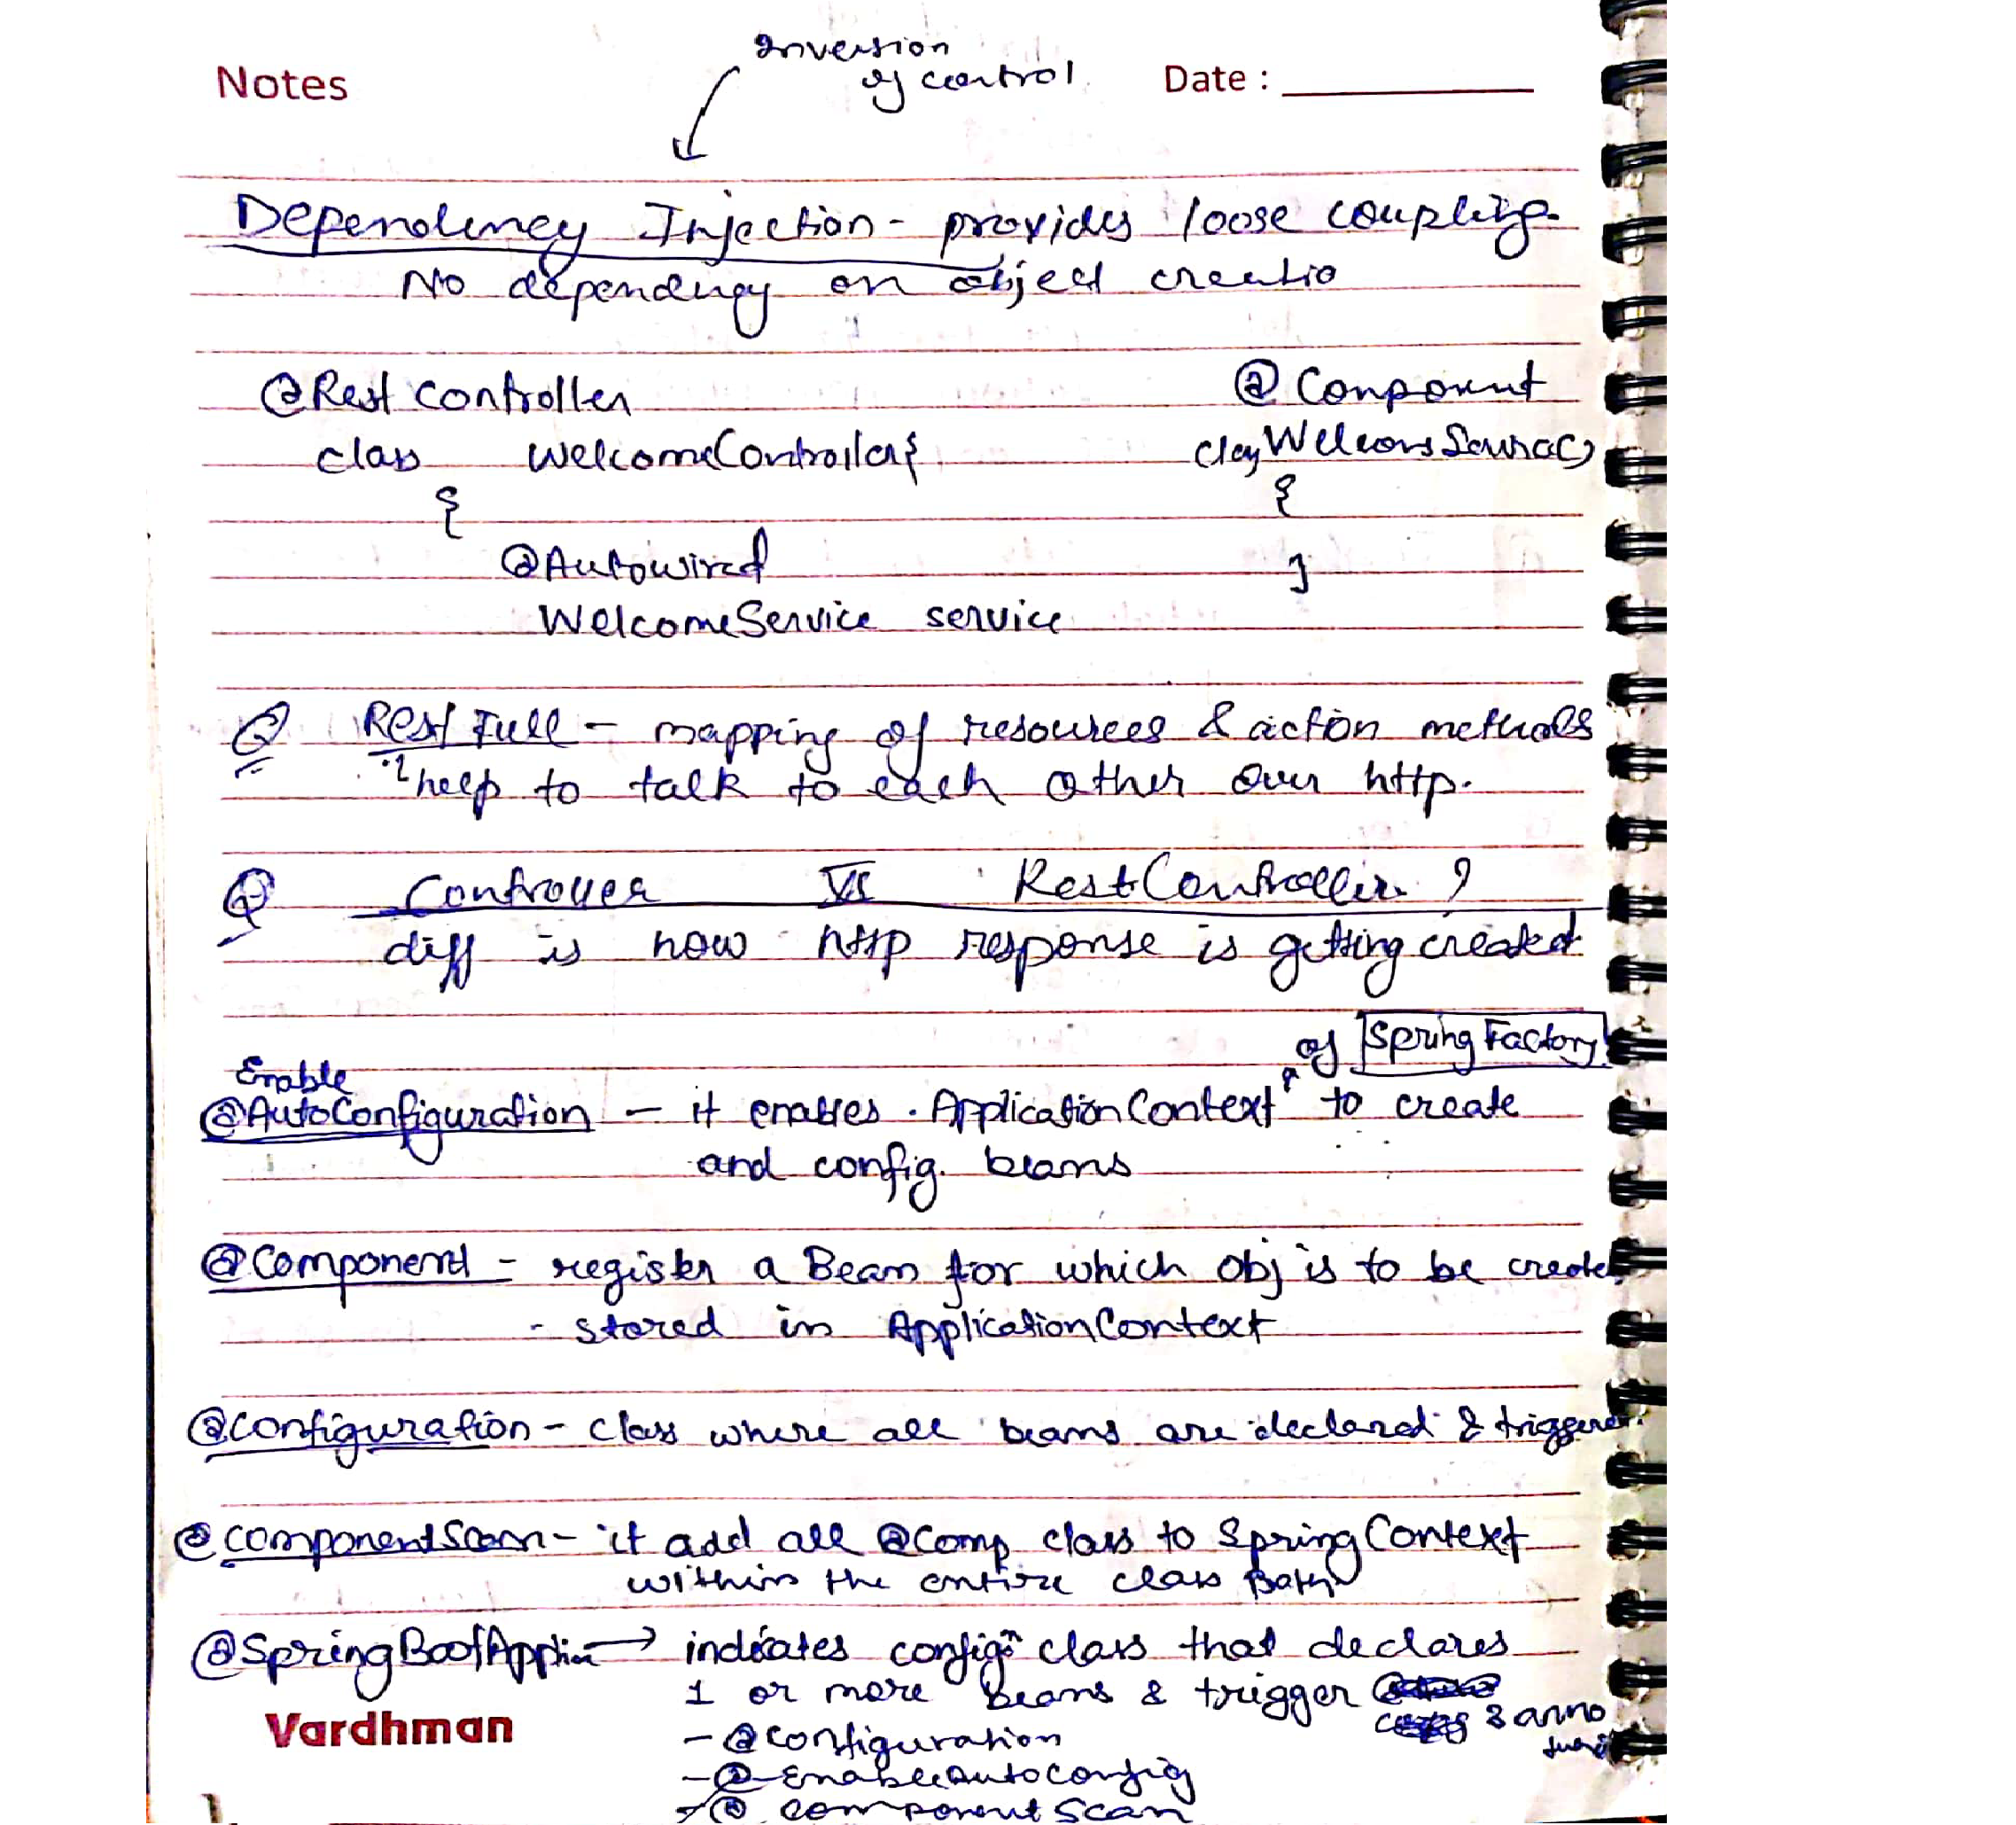 Notes
Inversion
of control
Date :
Dependency Injection - provides loose coupling
No dependency on object creatio
@Rest controller
@ Component
class WelcomeController{
class Welcome
{
{
@Autowired
}
WelcomeService service
Q Rest Full - mapping of resources & action methods
help to talk to each other over http.
Q Controller VS RestController ?
diff is how http response is getting created
of Spring Factory
Enable
@AutoConfiguration - it enables ApplicationContext to create
and config. beans
@Component - register a Bean for which obj is to be create
- stored in ApplicationContext
@configuration - class where all beans are declared & trigger
@componentScan - it add all @Comp class to SpringContext
within the entire class Path
@SpringBootApplin → indicates confign class that declares
1 or more beans & trigger
3 anno
- @configuration
- @ EnableAutoconfig
- @ componentScan
Vardhman